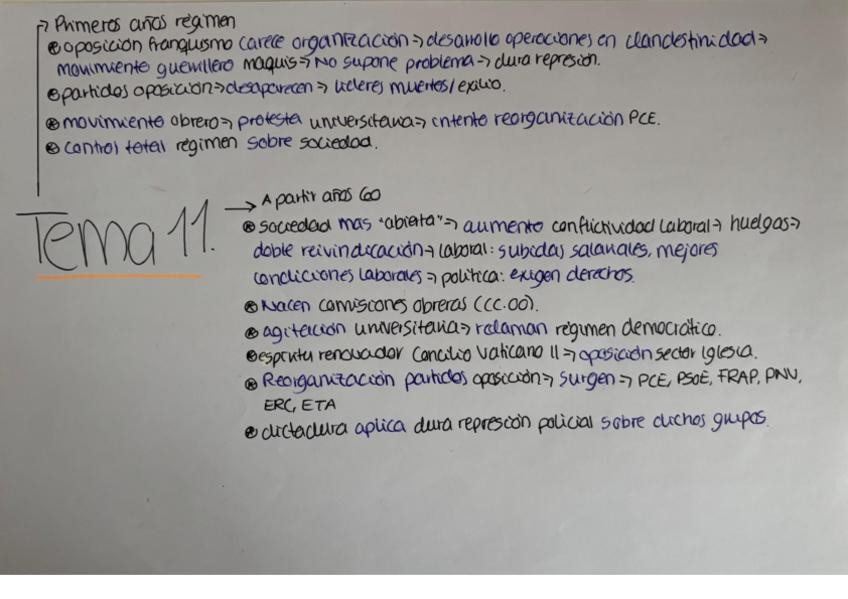 → Primeros años régimen
⊛ oposición franquismo carece organización ⇒ desarrollo operaciones en clandestinidad ⇒
movimiento guerrillero maquis ⇒ No supone problema ⇒ dura represión.
⊛ partidos oposición ⇒ desaparecen ⇒ líderes muertos/exilio.
⊛ movimiento obrero ⇒ protesta universitaria ⇒ intento reorganización PCE.
⊛ control total régimen sobre sociedad.
Tema 11.
→ A partir años 60
⊛ sociedad mas "abierta" ⇒ aumento conflictividad laboral ⇒ huelgas ⇒
doble reivindicación → laboral: subidas salariales, mejores
condiciones laborales ⇒ política: exigen derechos.
⊛ Nacen comisiones obreras (CC.OO).
⊛ agitación universitaria ⇒ reclaman régimen democrático.
⊛ espíritu renovador Concilio Vaticano II ⇒ oposición sector Iglesia.
⊛ Reorganización partidos oposición ⇒ surgen ⇒ PCE, PSOE, FRAP, PNV,
ERC, ETA
⊛ dictadura aplica dura represión policial sobre dichos grupos.